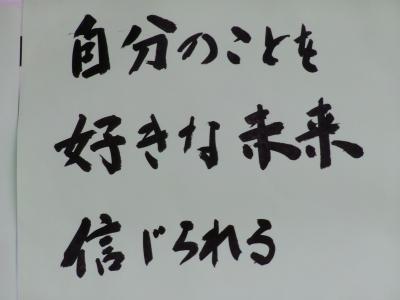 自分のことを
好きな未来
信じられる